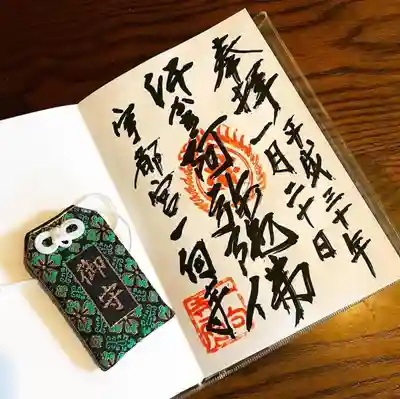 奉拝
平成三十年
一月二十日
紙金阿弥陀佛
宇都宮一向寺
御守